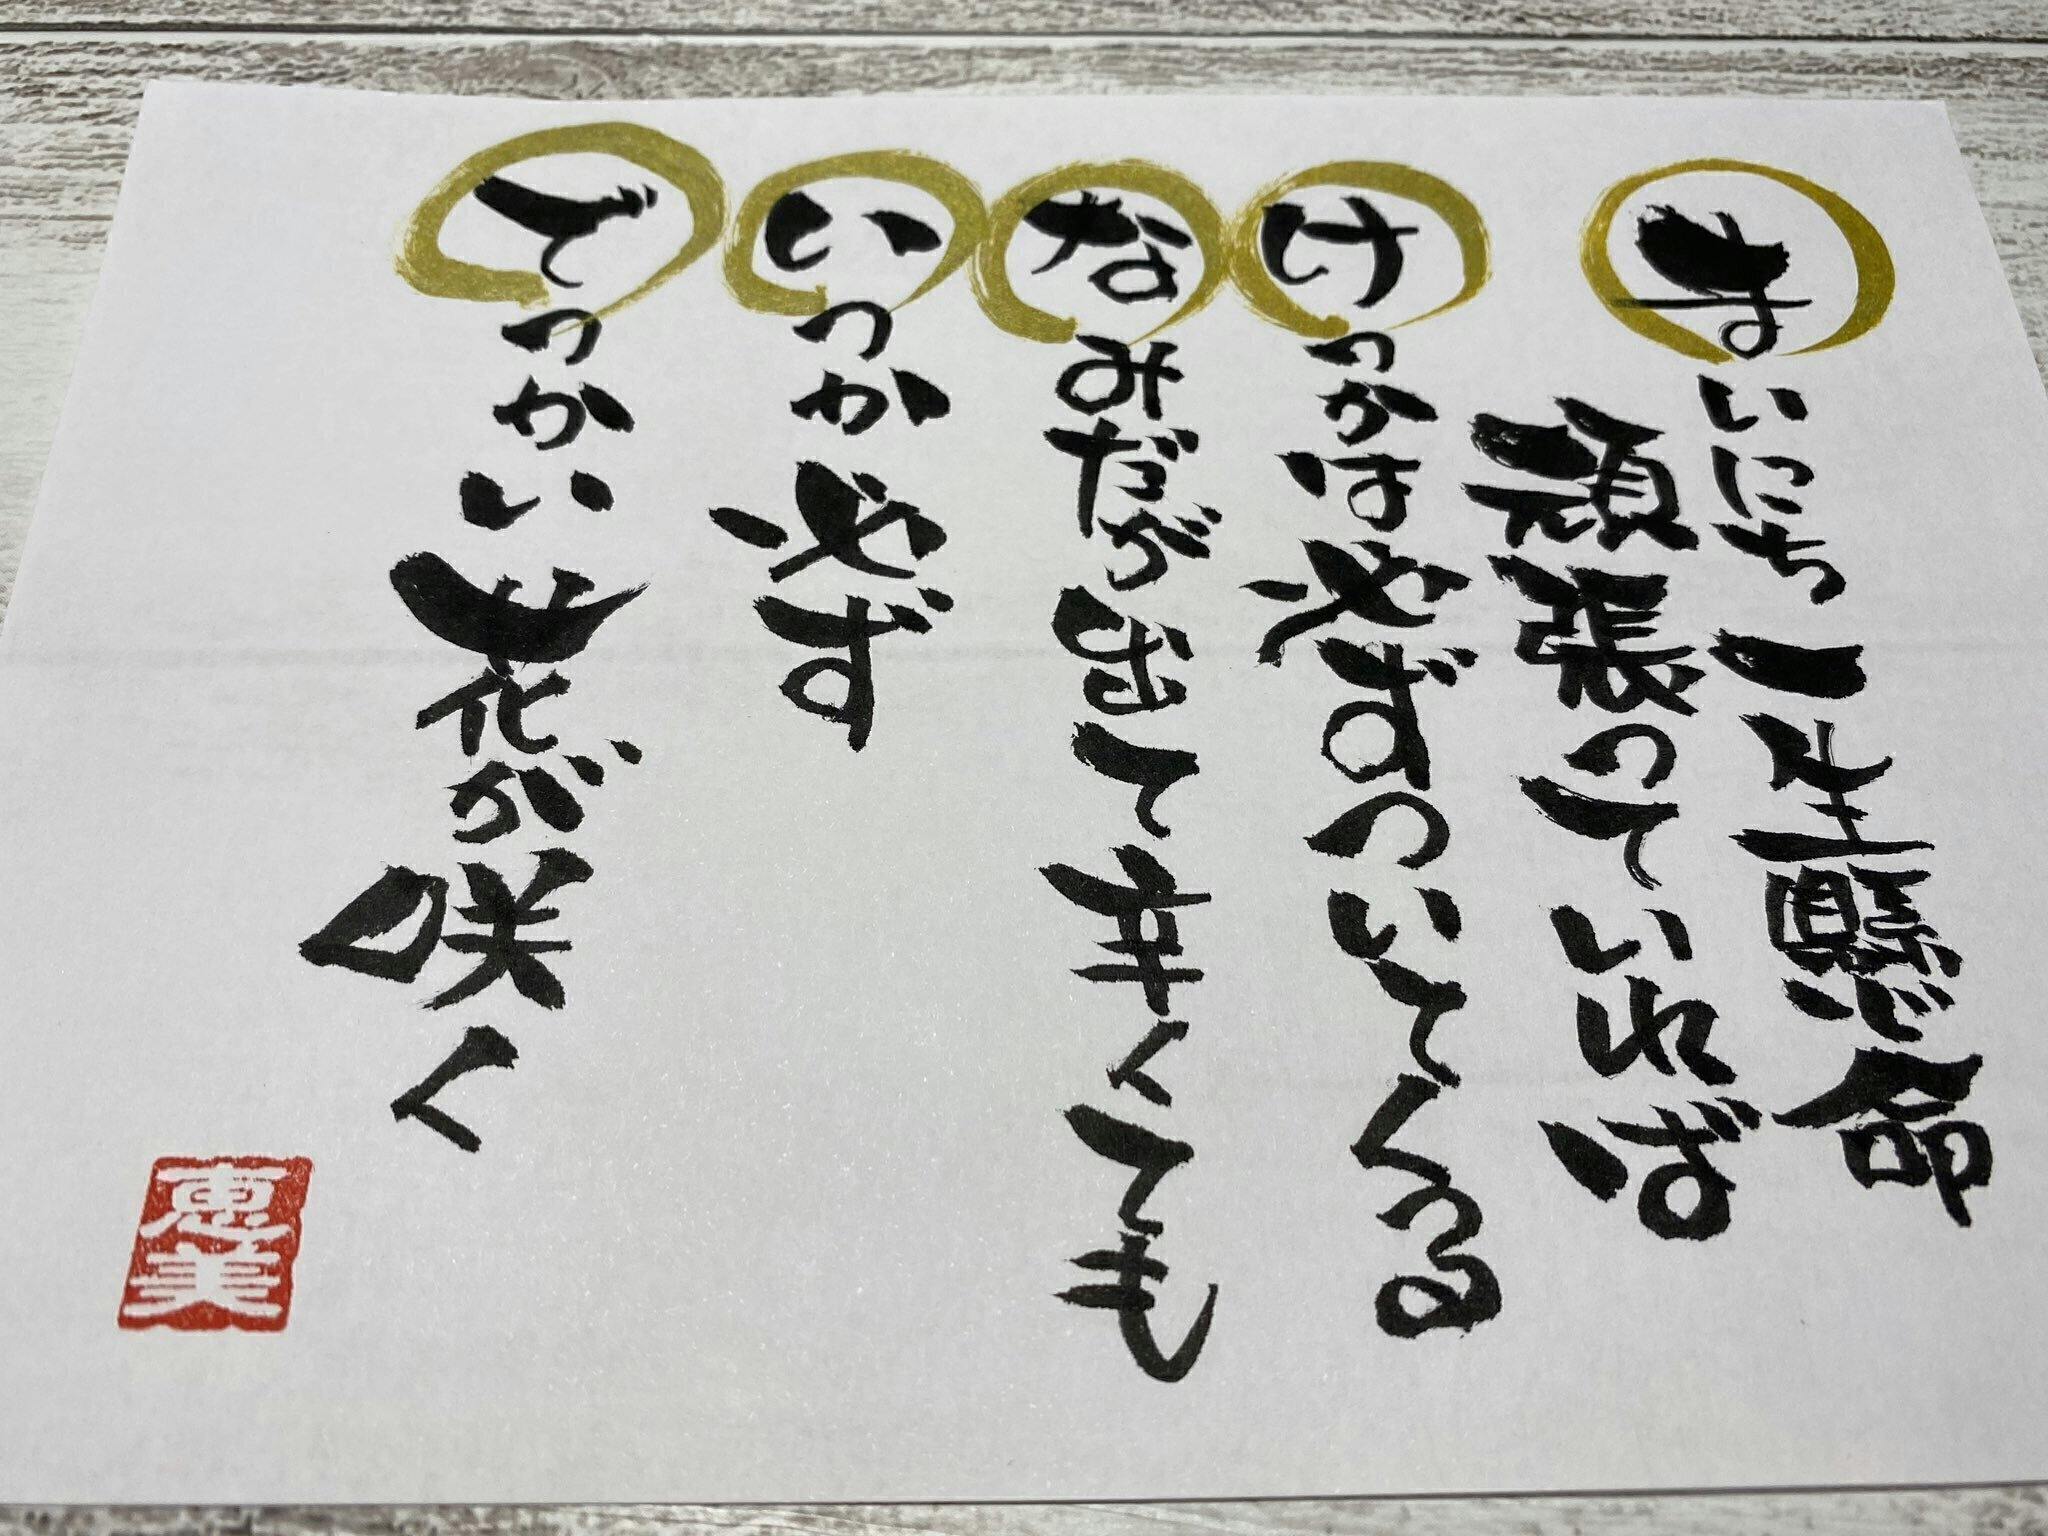 まいにち一生懸命
頑張っていれば
けっかは必ずついてくる
なみだが出て辛くても
いつか必ず
でっかい花が咲く
恵美